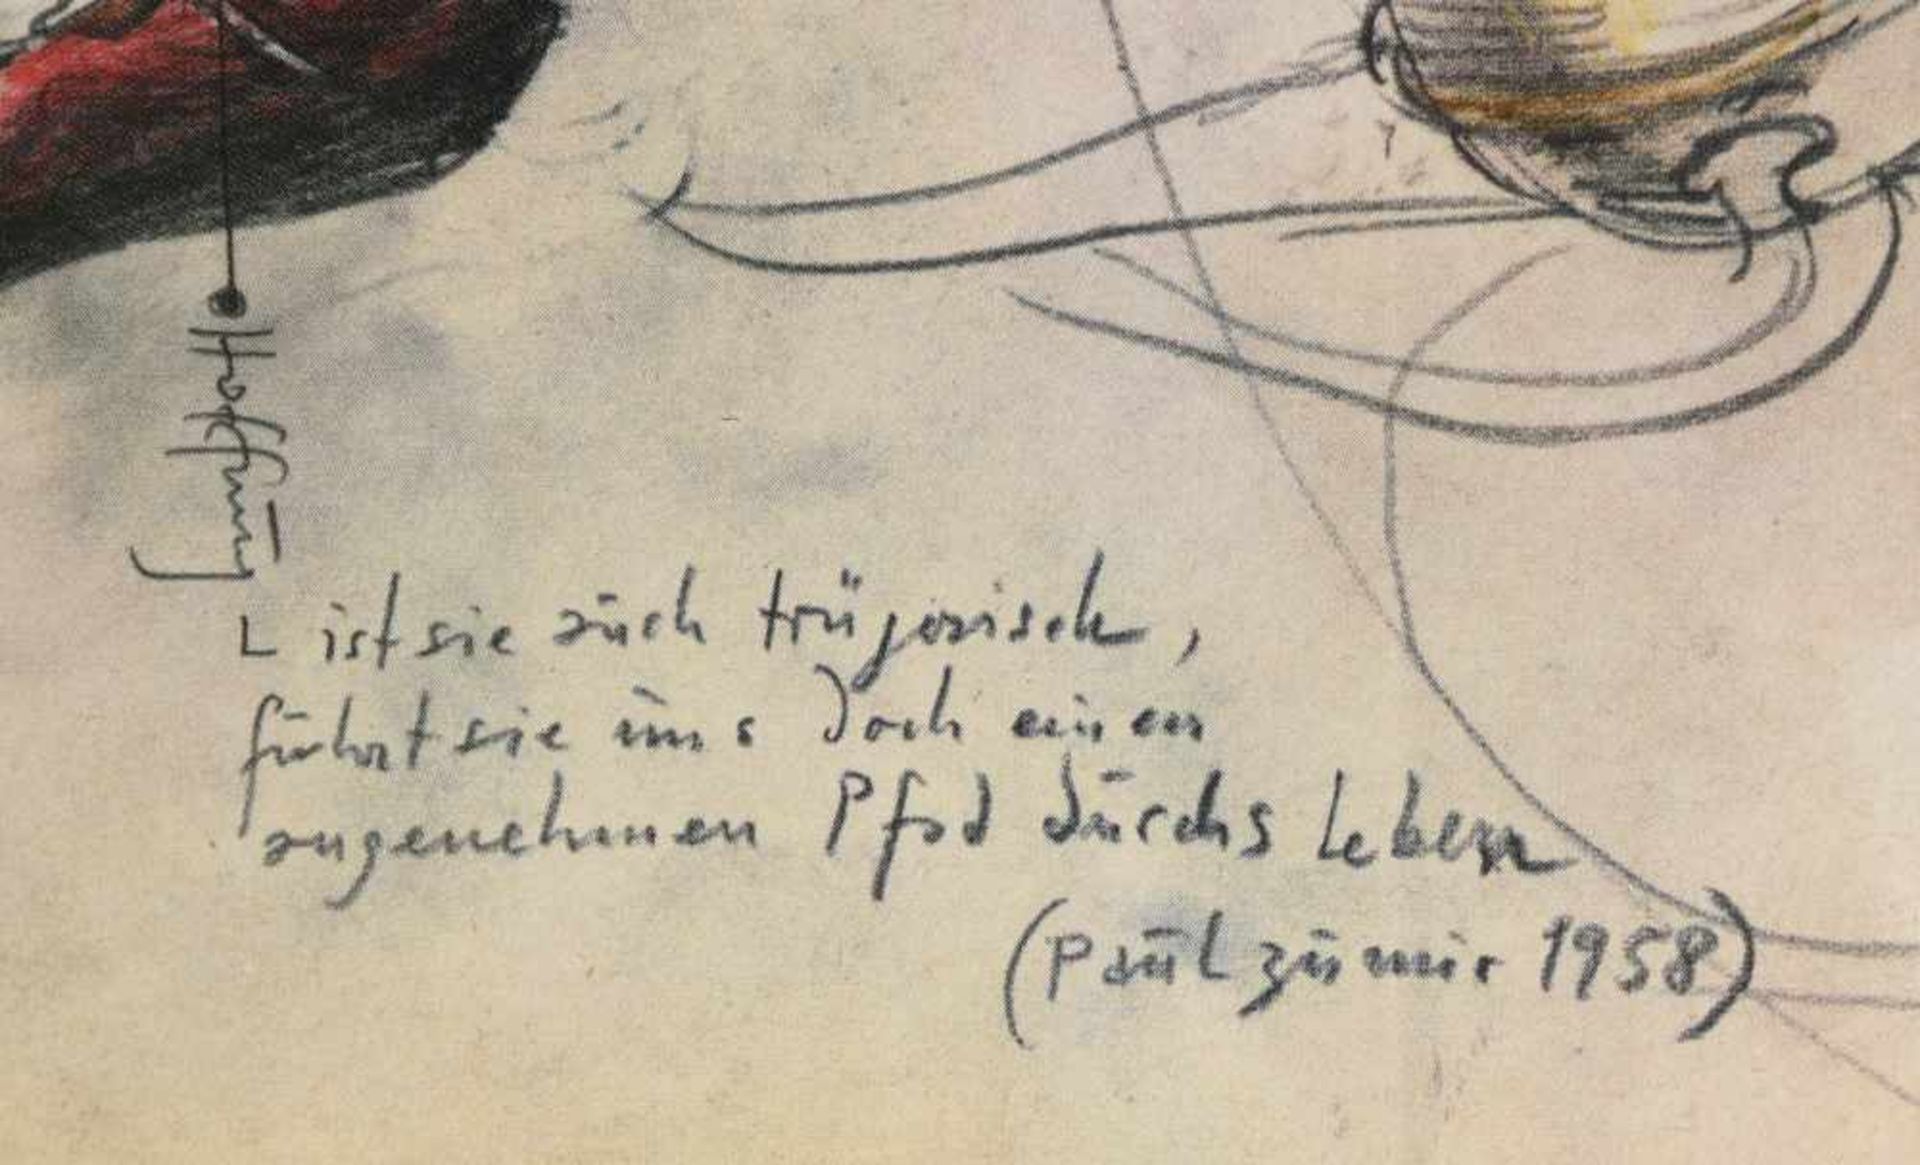 Hoffnung
ist sie auch trügerisch,
führt sie uns doch einen
angenehmen Pfad durchs Leben
(Paul zu mir 1958)